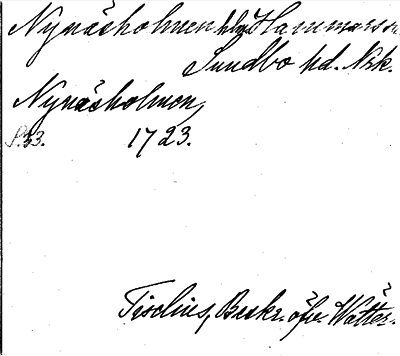 Nynäsholmen hlg Hammars sn
Sundbo hd. Nrk.
Nynäsholmen,
S. 33. 1723.
Tiselius, Beskr. öfv. Wätter.